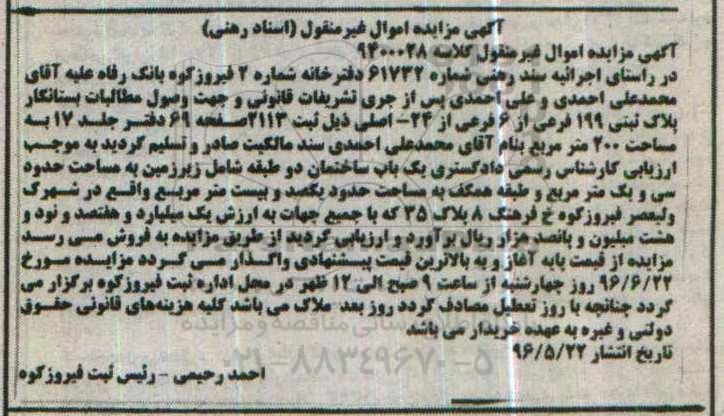 آگهی مزایده اموال غیرمنقول (اسناد رهنی)
آگهی مزایده اموال غیرمنقول کلاسه ۹۴۰۰۰۲۸
در راستای اجرائیه سند رهنی شماره ۶۱۷۳۲ دفترخانه شماره ۲ فیروزکوه بانک رفاه علیه آقای
محمدعلی احمدی و علی احمدی پس از جری تشریفات قانونی و جهت وصول مطالبات بستانکار
پلاک ثبتی ۱۹۹ فرعی از ۶ فرعی از ۲۴- اصلی ذیل ثبت ۲۱۱۳ صفحه ۶۹ دفتر جلد ۱۷ به
مساحت ۲۰۰ متر مربع بنام آقای محمدعلی احمدی سند مالکیت صادر و تسلیم گردید به موجب
ارزیابی کارشناس رسمی دادگستری یک باب ساختمان دو طبقه شامل زیرزمین به مساحت حدود
سی و یک متر مربع و طبقه همکف به مساحت حدود یکصد و بیست متر مربع واقع در شهرک
ولیعصر فیروزکوه خ فرهنگ ۸ پلاک ۳۵ که با جمیع جهات به ارزش یک میلیارد و هفتصد و نود و
هشت میلیون و پانصد هزار ریال برآورد و ارزیابی گردید از طریق مزایده به فروش می رسد
مزایده از قیمت پایه آغاز و به بالاترین قیمت پیشنهادی واگذار می گردد مزایده مورخ
۹۶/۶/۲۲ روز چهارشنبه از ساعت ۹ صبح الی ۱۲ ظهر در محل اداره ثبت فیروزکوه برگزار می
گردد چنانچه با روز تعطیل مصادف گردد روز بعد ملاک می باشد کلیه هزینه‌های قانونی حقوق
دولتی و غیره به عهده خریدار می باشد
تاریخ انتشار ۹۶/۵/۲۲
احمد رحیمی - رئیس ثبت فیروزکوه
۰۲۱-۸۸۳۴۹۶۷۰-۵